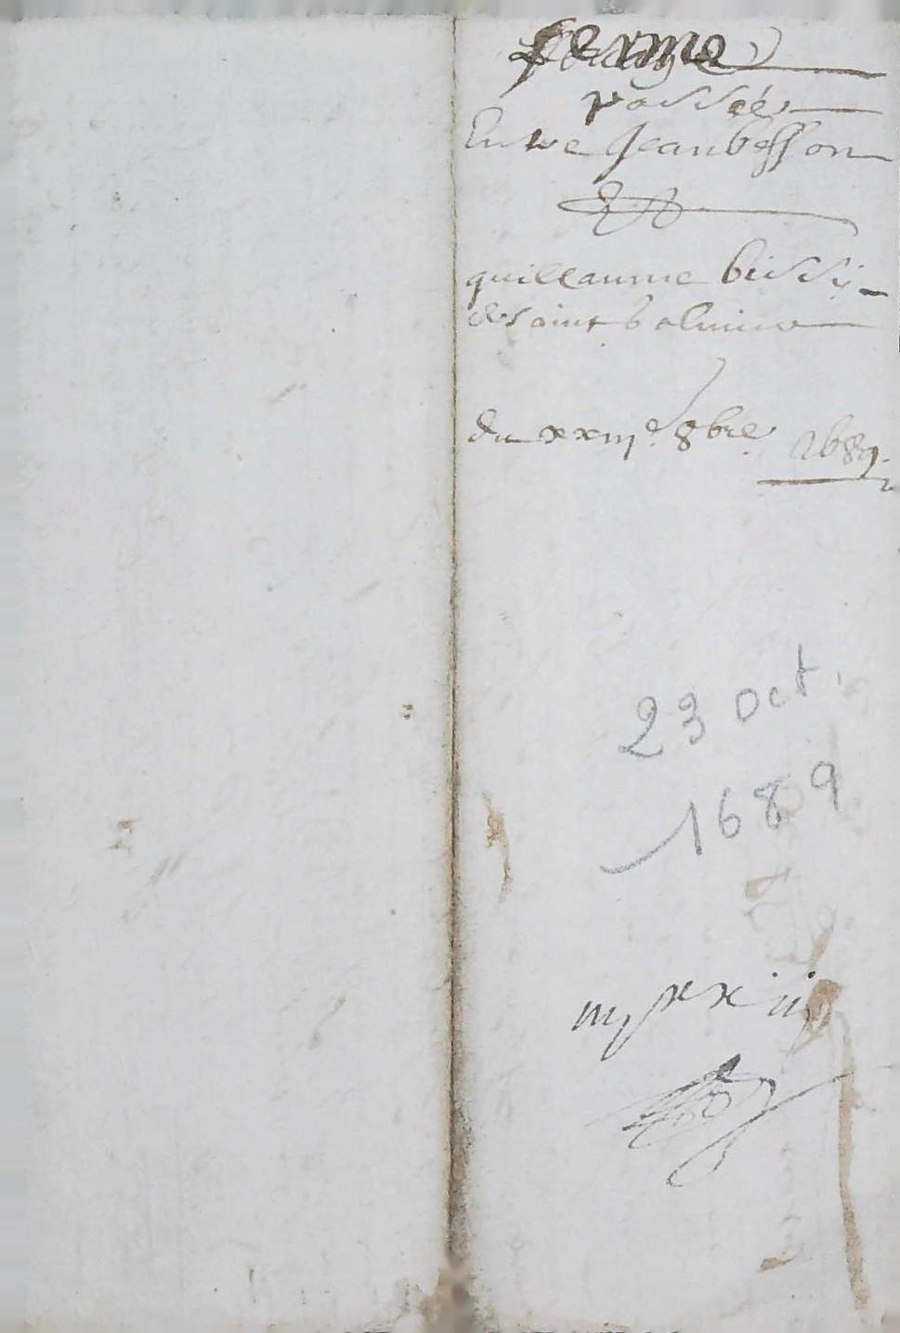 ferme
passée
Entre Jean besson
Et
guillaume bissy
de saint balmier
du xxiij.e 8bre. 1689.
23 oct.
1689